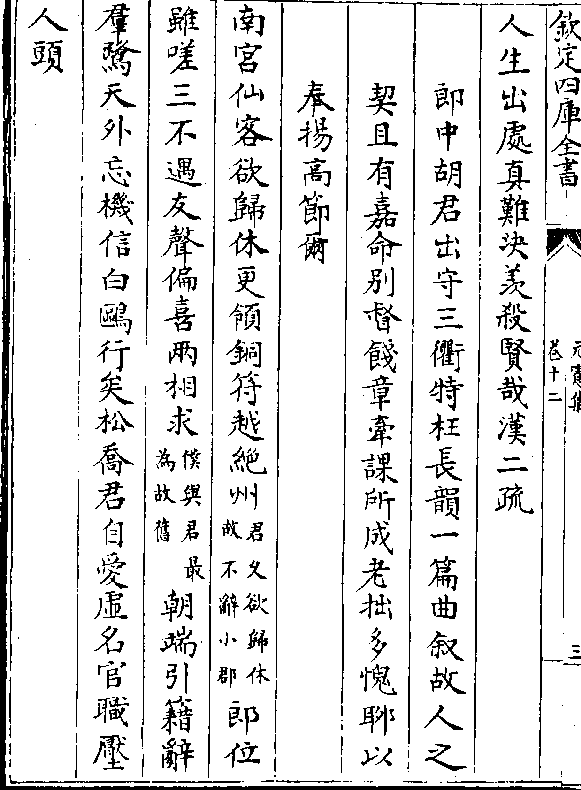 欽定四庫全書
元憲集
卷十二
三
人生出處真難決羨殺賢哉漢二疏
郎中胡君出守三衢特枉長韻一篇曲叙故人之
契且有嘉命别督餞章牽課所成老拙多愧聊以
奉揚高節爾
南宫仙客欲歸休更領銅符越絶州君久欲歸休故不辭小郡郎位
雖嗟三不遇友聲偏喜兩相求僕與君最為故舊朝端引籍辭
羣鷺天外忘機信白鷗行矣松喬君自愛虚名官職壓
人頭